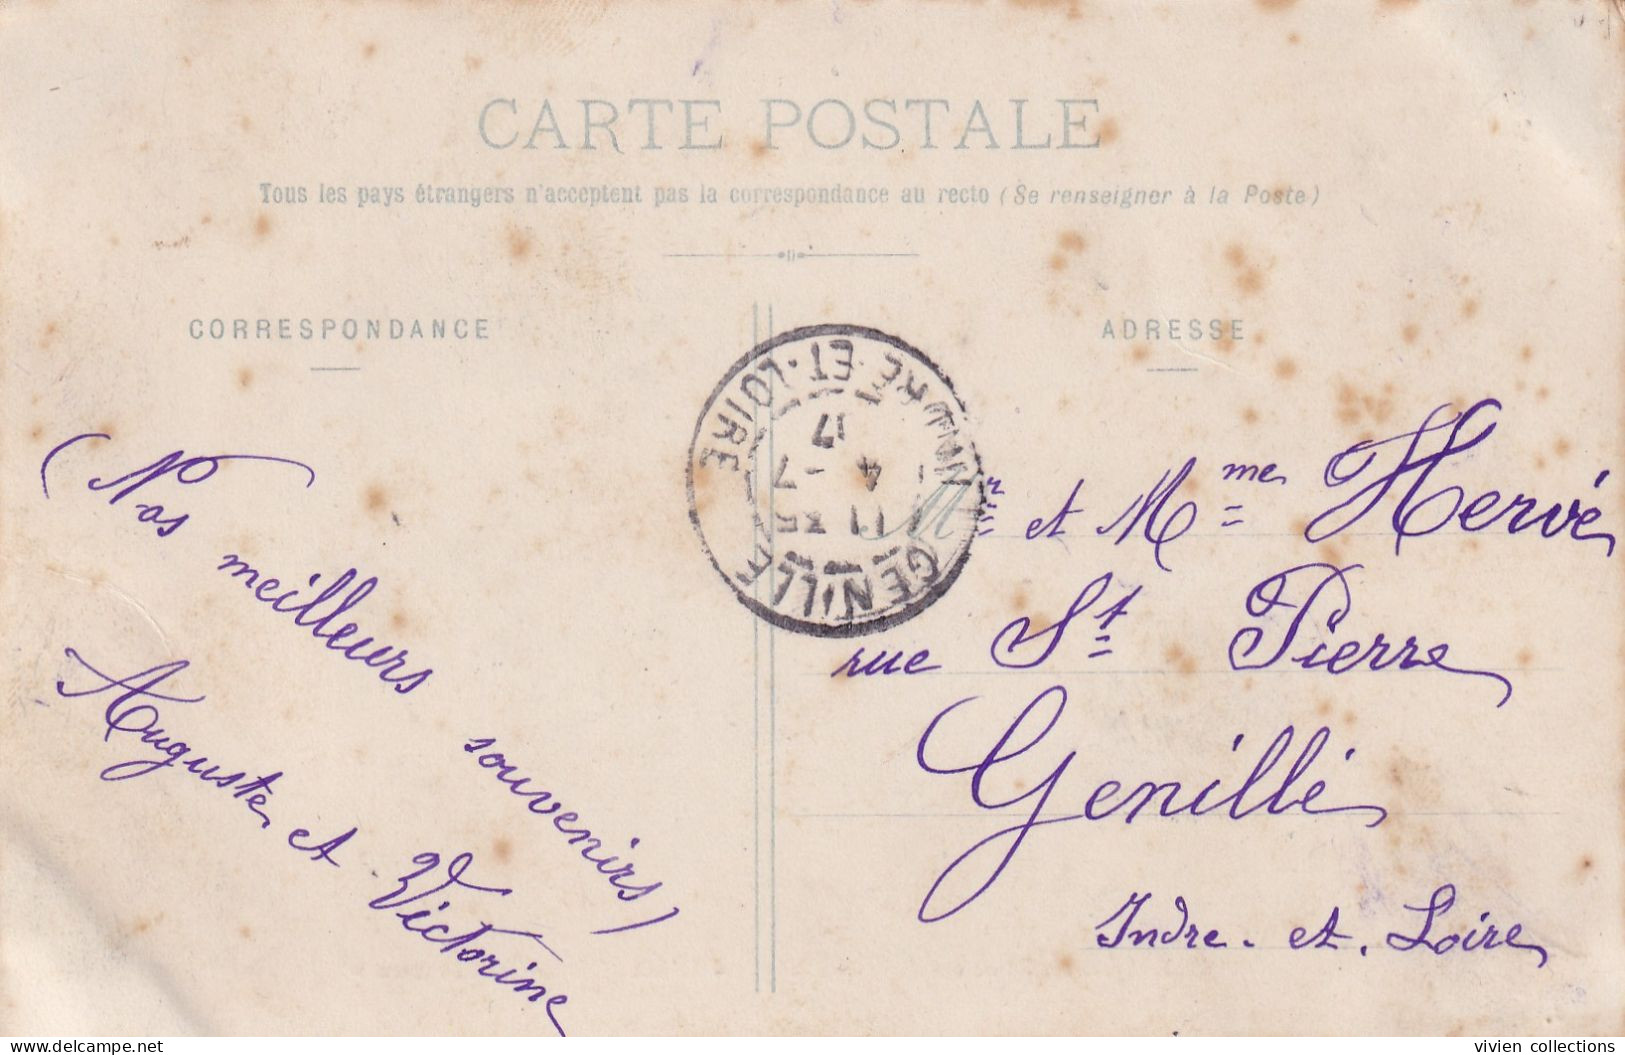 CARTE POSTALE
Tous les pays étrangers n'acceptent pas la correspondance au recto (Se renseigner à la Poste)
CORRESPONDANCE
(Nos meilleurs souvenirs)
Auguste et Victorine
GENILLÉ
11 35
4 - 7
17
INDRE-ET-LOIRE
ADRESSE
Mr et Mme Hervé
rue St Pierre
Genillé
Indre-et-Loire
vivien collections